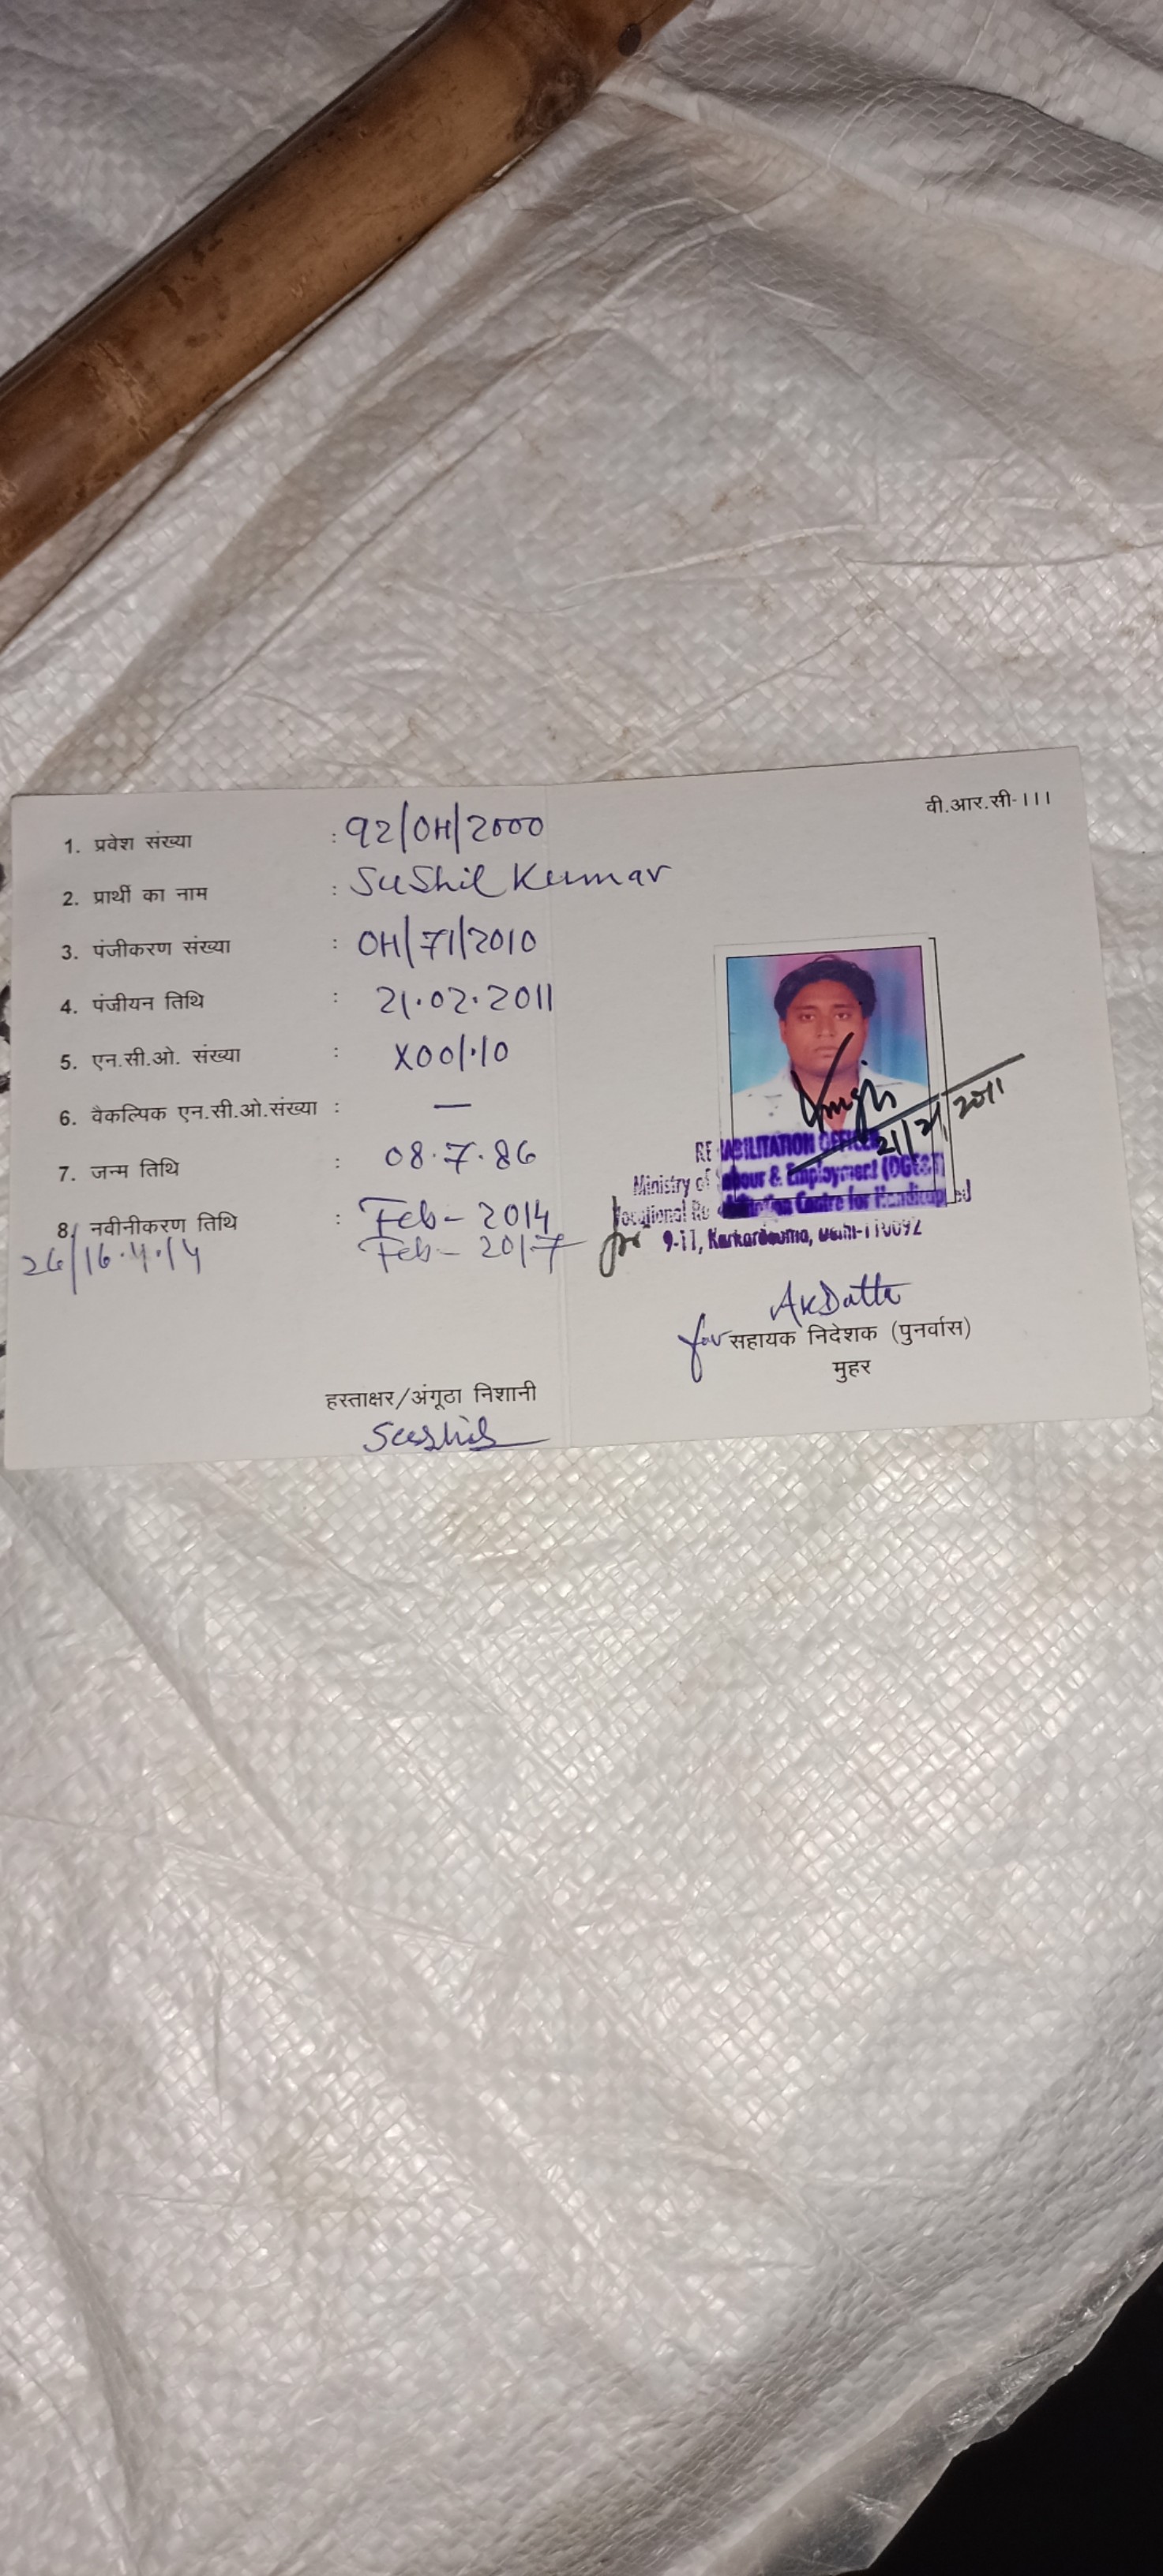 1. प्रवेश संख्या : 92/OH/2000
2. प्रार्थी का नाम : Sushil Kumar
3. पंजीकरण संख्या : OH/71/2010
4. पंजीयन तिथि : 21.02.2011
5. एन.सी.ओ. संख्या : X001.10
6. वैकल्पिक एन.सी.ओ.संख्या : —
7. जन्म तिथि : 08.7.86
8. नवीनीकरण तिथि : Feb - 2014
26/16.4.14 Feb - 2017
हस्ताक्षर/अंगूठा निशानी
Sushil
वी.आर.सी-III
21/2/2011
REHABILITATION OFFICER
Ministry of Labour & Employment (DGE&T)
Vocational Rehabilitation Centre for Handicapped
for 9-11, Karkardooma, Delhi-110092
AKDatta
for सहायक निदेशक (पुनर्वास)
मुहर